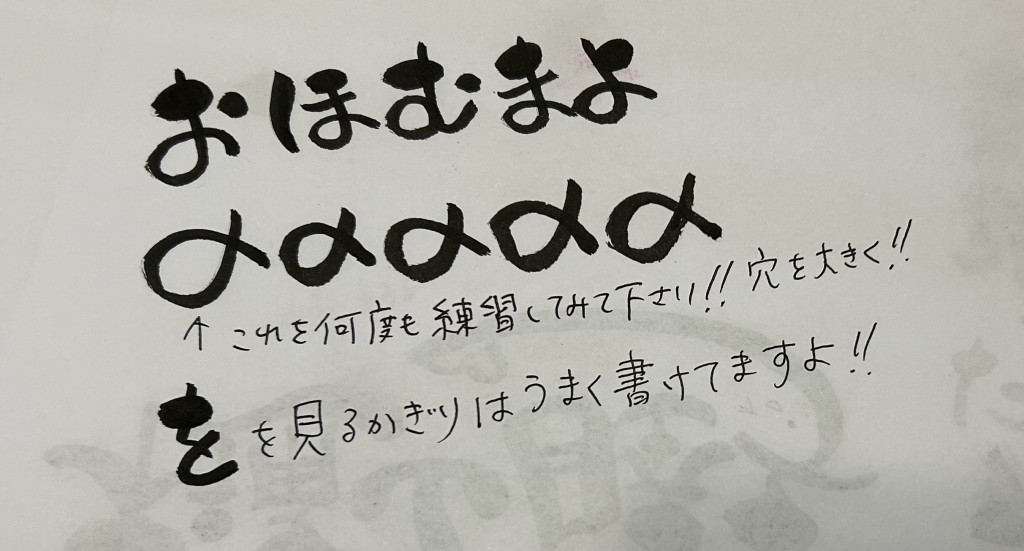 おほむまよ
αααααα
↑これを何度も練習してみて下さい!!穴を大きく!!
をを見るかぎりはうまく書けてますよ!!